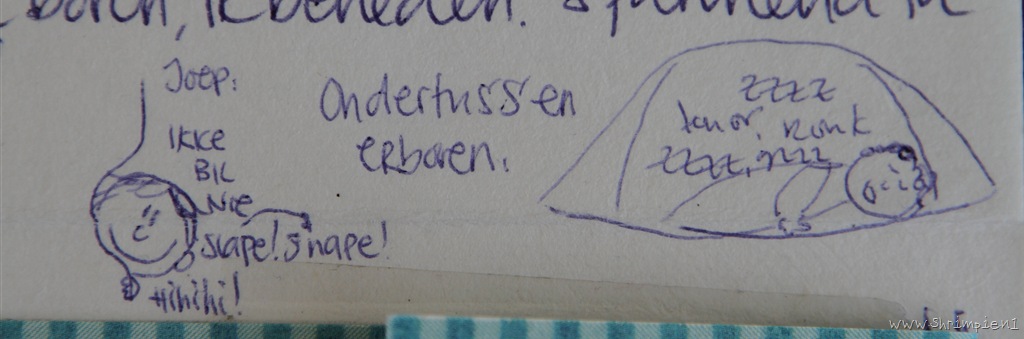 Joep:
IKKE
BIL
NIE
Slape! Snape!
Hihihi!
Ondertussen
erboven:
ZZZZ
knor, ronk
ZZZZ,
www.Shrimpien1